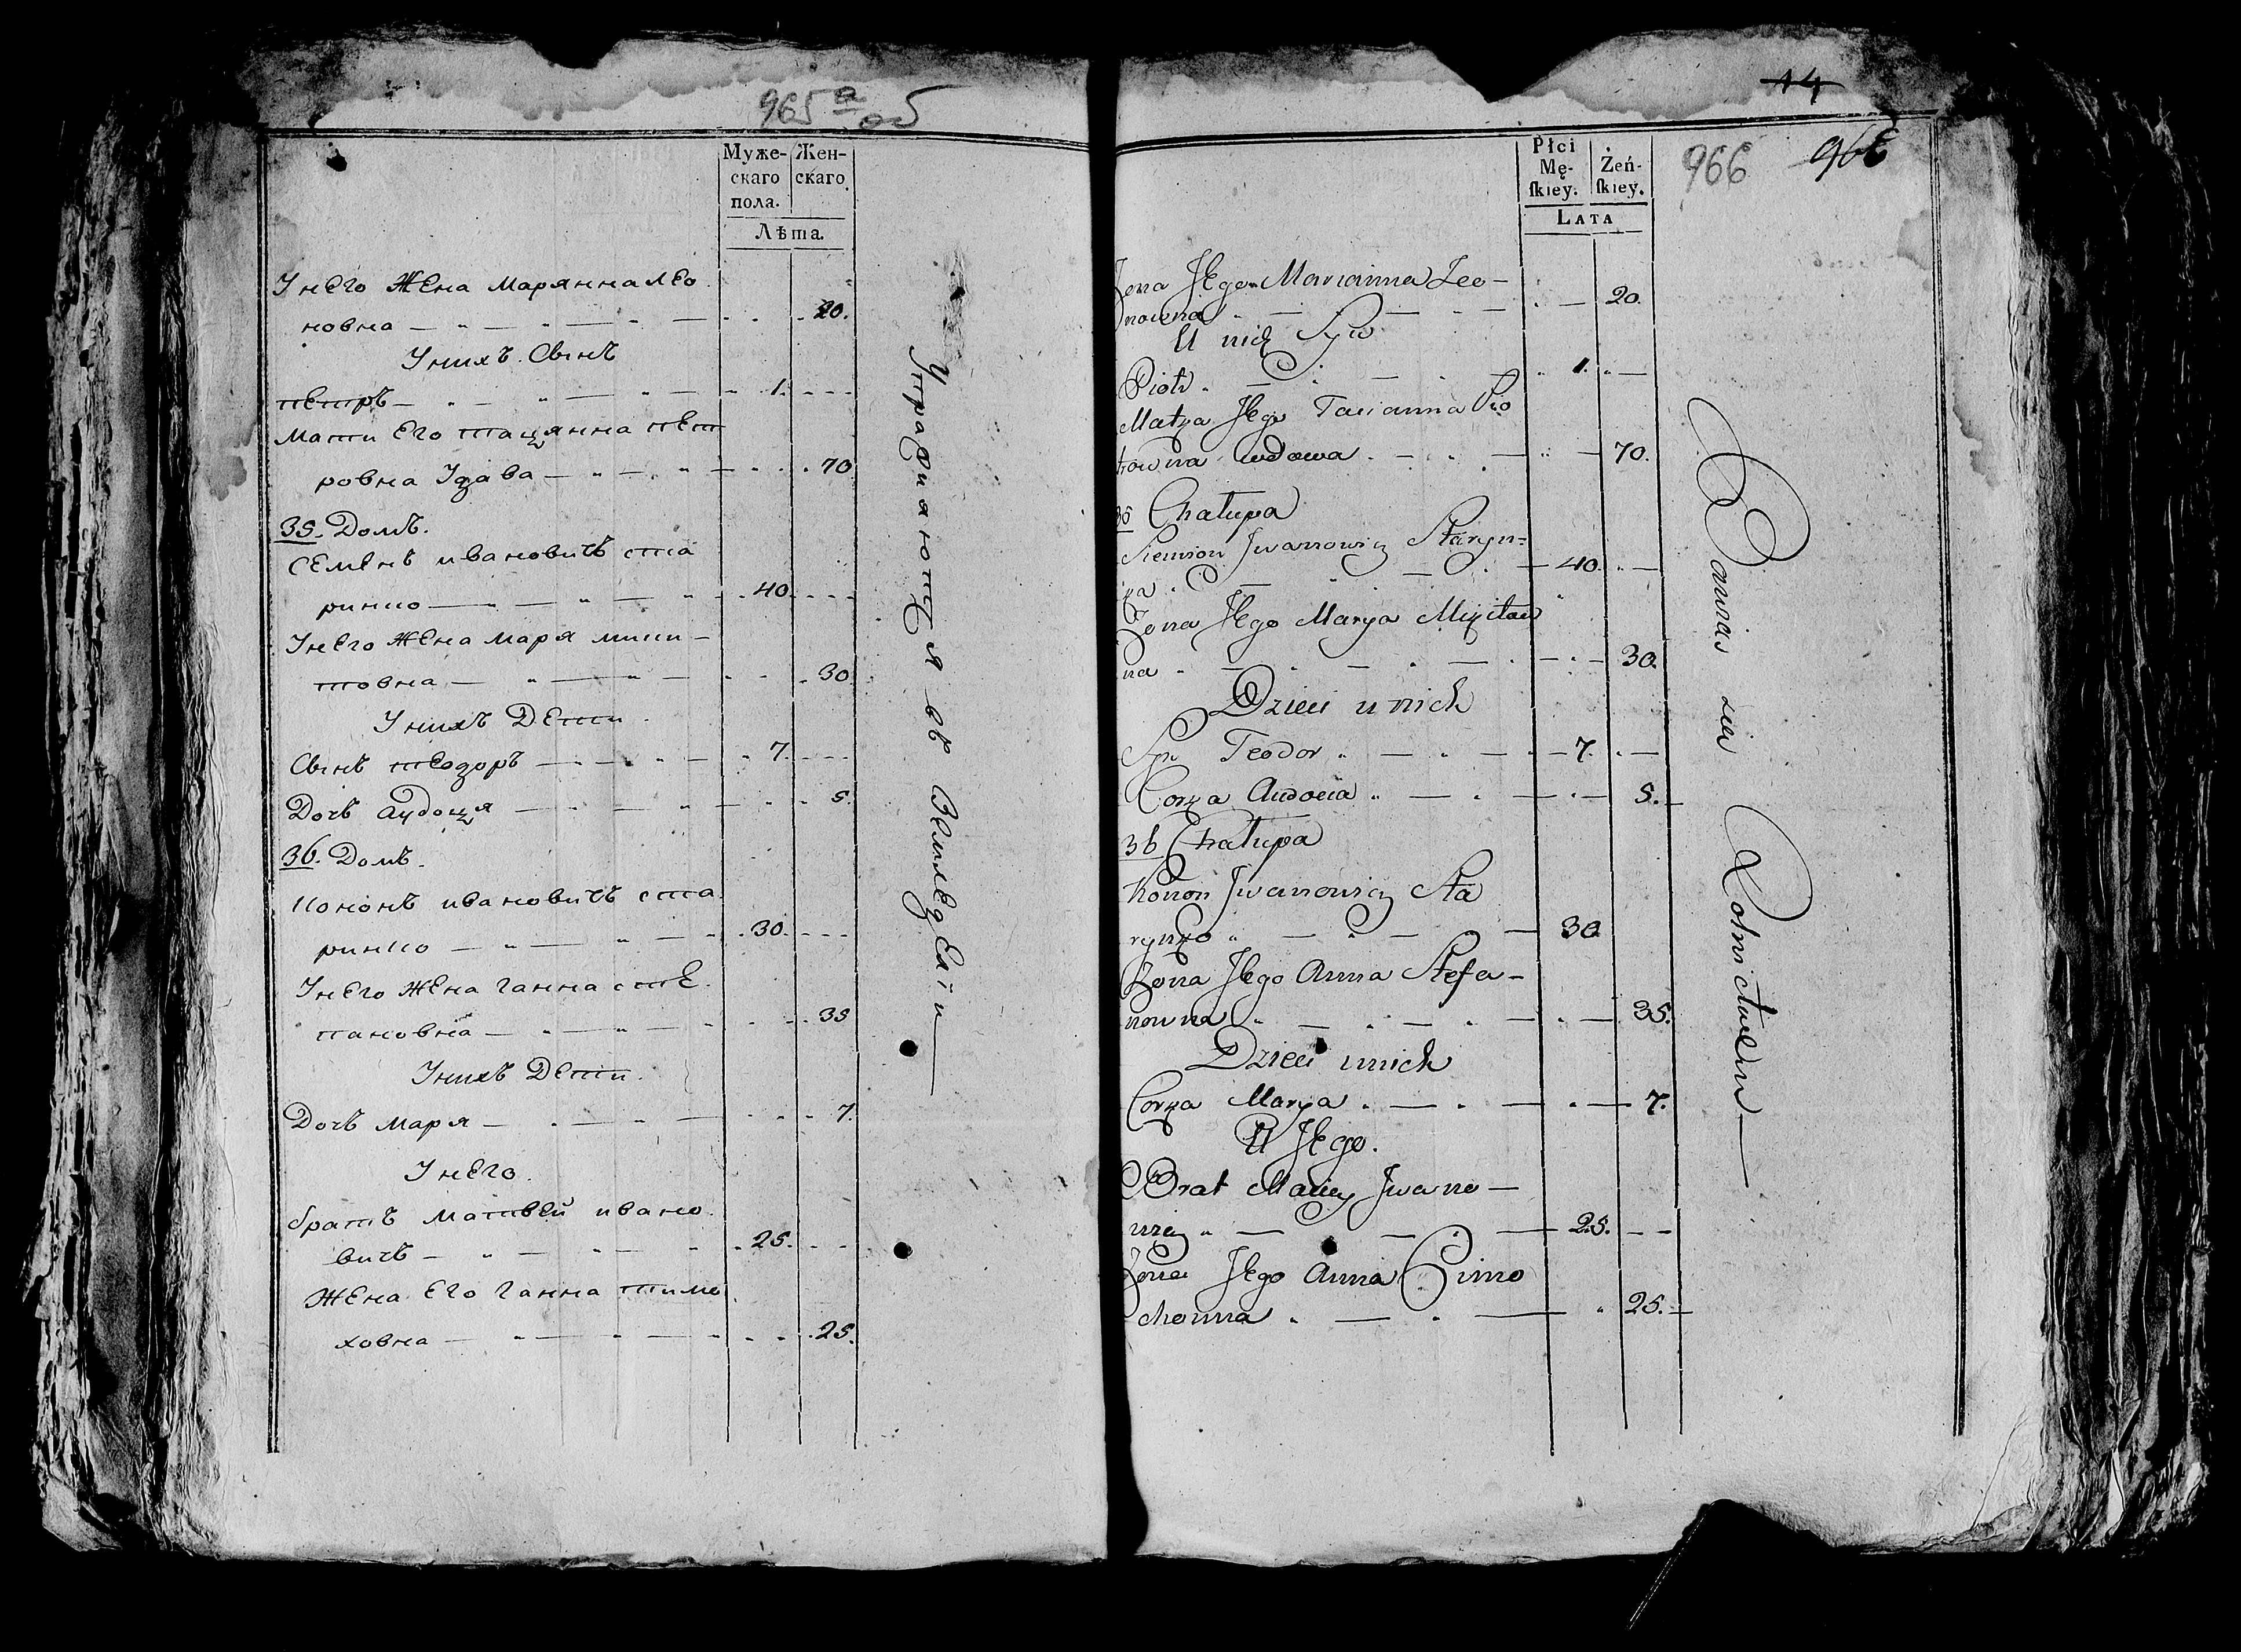 965 а об
Муже-
скаго
пола.
Жен-
скаго.
Лѣта.
У него Жена Марянна лео
новна 20.
У нихъ Сынъ
петръ 1.
Мати Его тацянна пет
ровна Удава 70
35. Домъ.
Семенъ ивановичъ ста
ринко 40.
У него Жена маря мики-
товна 30.
У нихъ Дети.
Сынъ теодоръ 7.
Дочъ аудоця 5.
36. Домъ.
кононъ ивановичъ ста
ринко 30.
У него Жена ганна сте
пановна 35
У нихъ Дети.
Дочъ маря 7.
У него.
братъ матвей ивано
вичъ 25.
Жена Его ганна тимо
ховна 25.
Упражняютця въ Земледелїи
14
966 966
Płci
Mę-
ſkiey.
Żeń-
ſkiey.
LATA
Żona Jego Marianna Leo-
nowna 20.
U nich Syn
Piotr 1.
Matka Jego Tacianna Pio
trowna wdowa 70.
35 Chałupa
Siemion Jwanowicz Staryn=
ka 40.
Żona Jego Marya Mikitow
na 30.
Dzieci u nich
Syn Teodor 7.
Corka Audocia 5.
36 Chałupa
Konon Jwanowicz Sta
rynko 30
Żona Jego Anna Stefa-
nowna 35.
Dzieci u nich
Corka Marya 7.
U Jego.
Brat Maciey Jwano-
wicz 25.
Żona Jego Anna Cimo
chowna 25.
Bawią się Rolnictwem